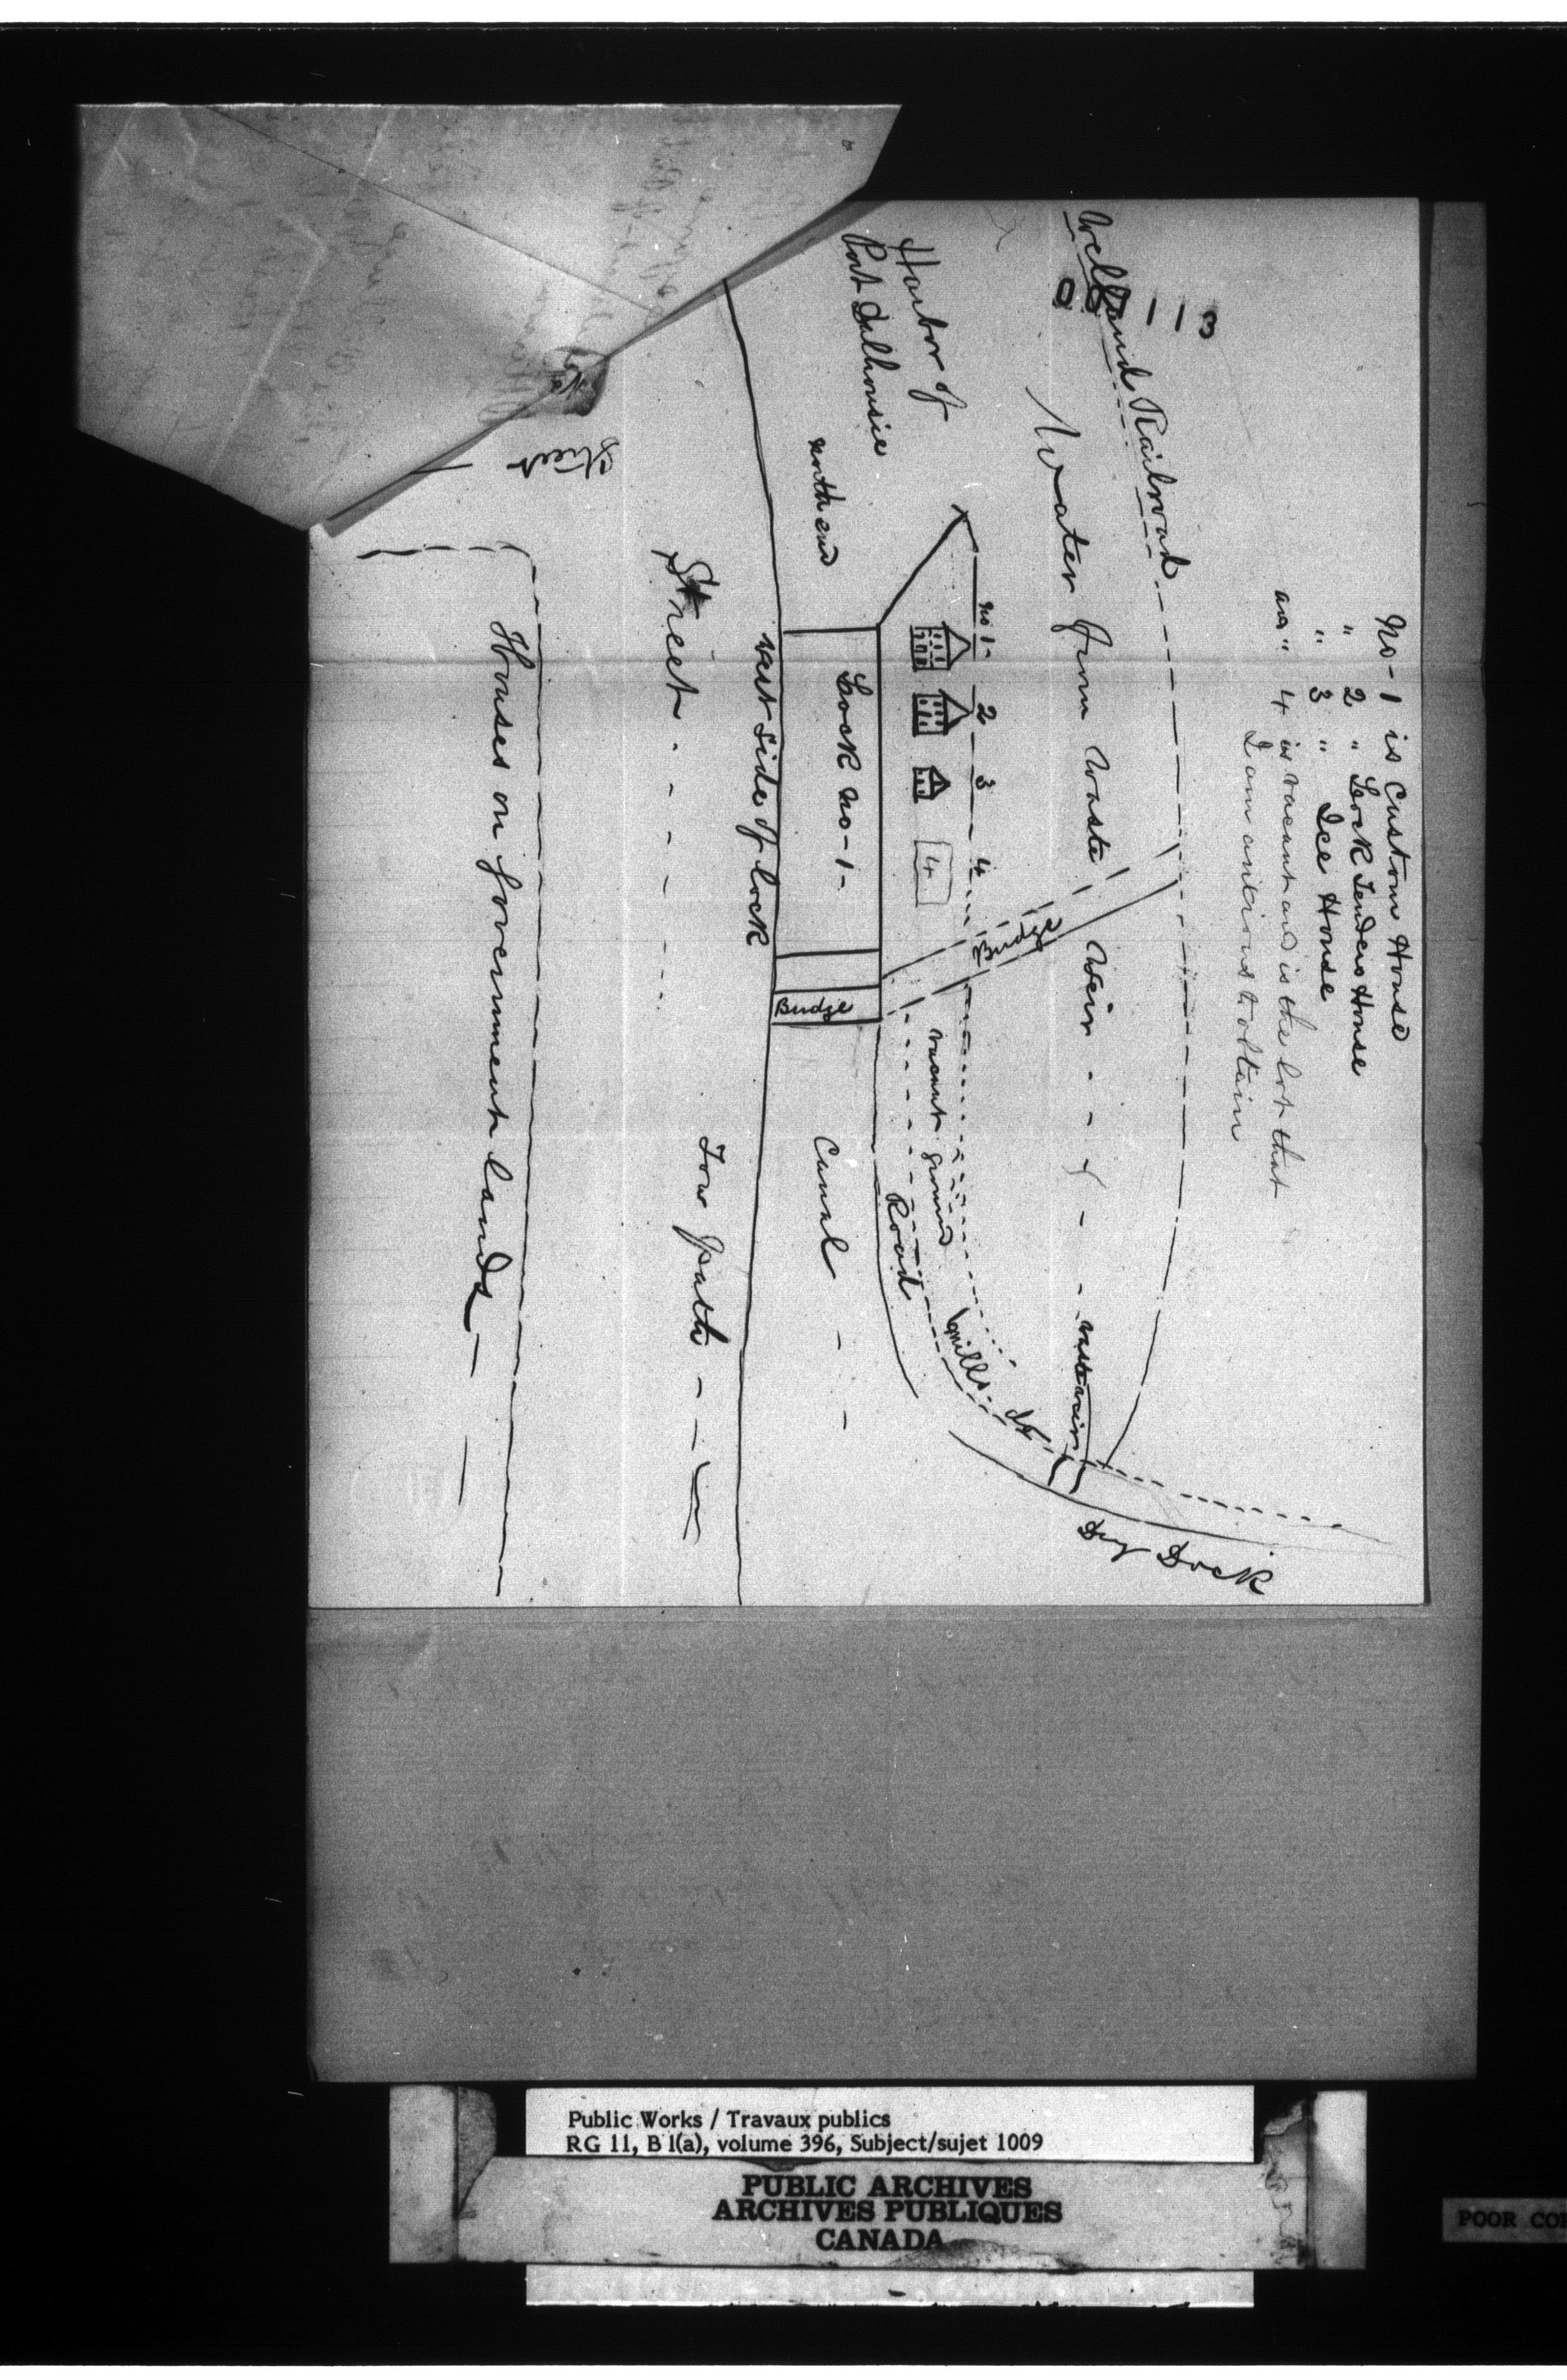 No-1 is Custom House
" 2 " Lock Tenders House
" 3 " Ice House
and " 4 is vacant and is the lot that
I am anxious to obtain
113
Welland Railroad
Water from Waste Weir
Harbor of
Port Dalhousie
north end
No 1-
2
3
4
4
Bridge
Lock No-1-
Bridge
west side of lock
Street
Street
Houses on Government lands
Tow path
Canal
vacant ground
Road
mills
Dry Dock
Public Works / Travaux publics
RG 11, B 1(a), volume 396, Subject/sujet 1009
PUBLIC ARCHIVES
ARCHIVES PUBLIQUES
CANADA
POOR CO